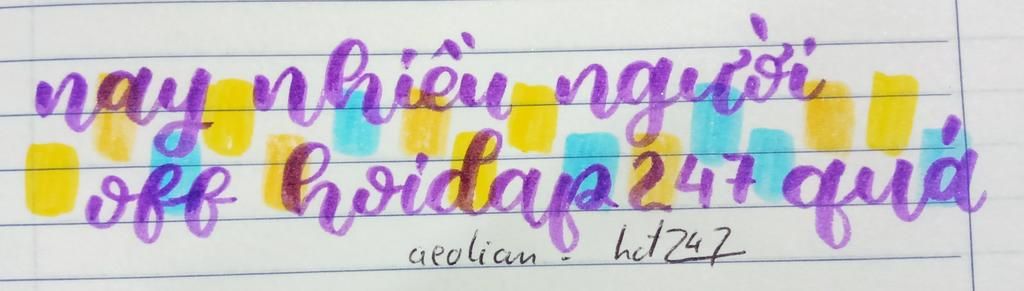 nay nhiều người
off hoidap247 quá
aeolian - hd247